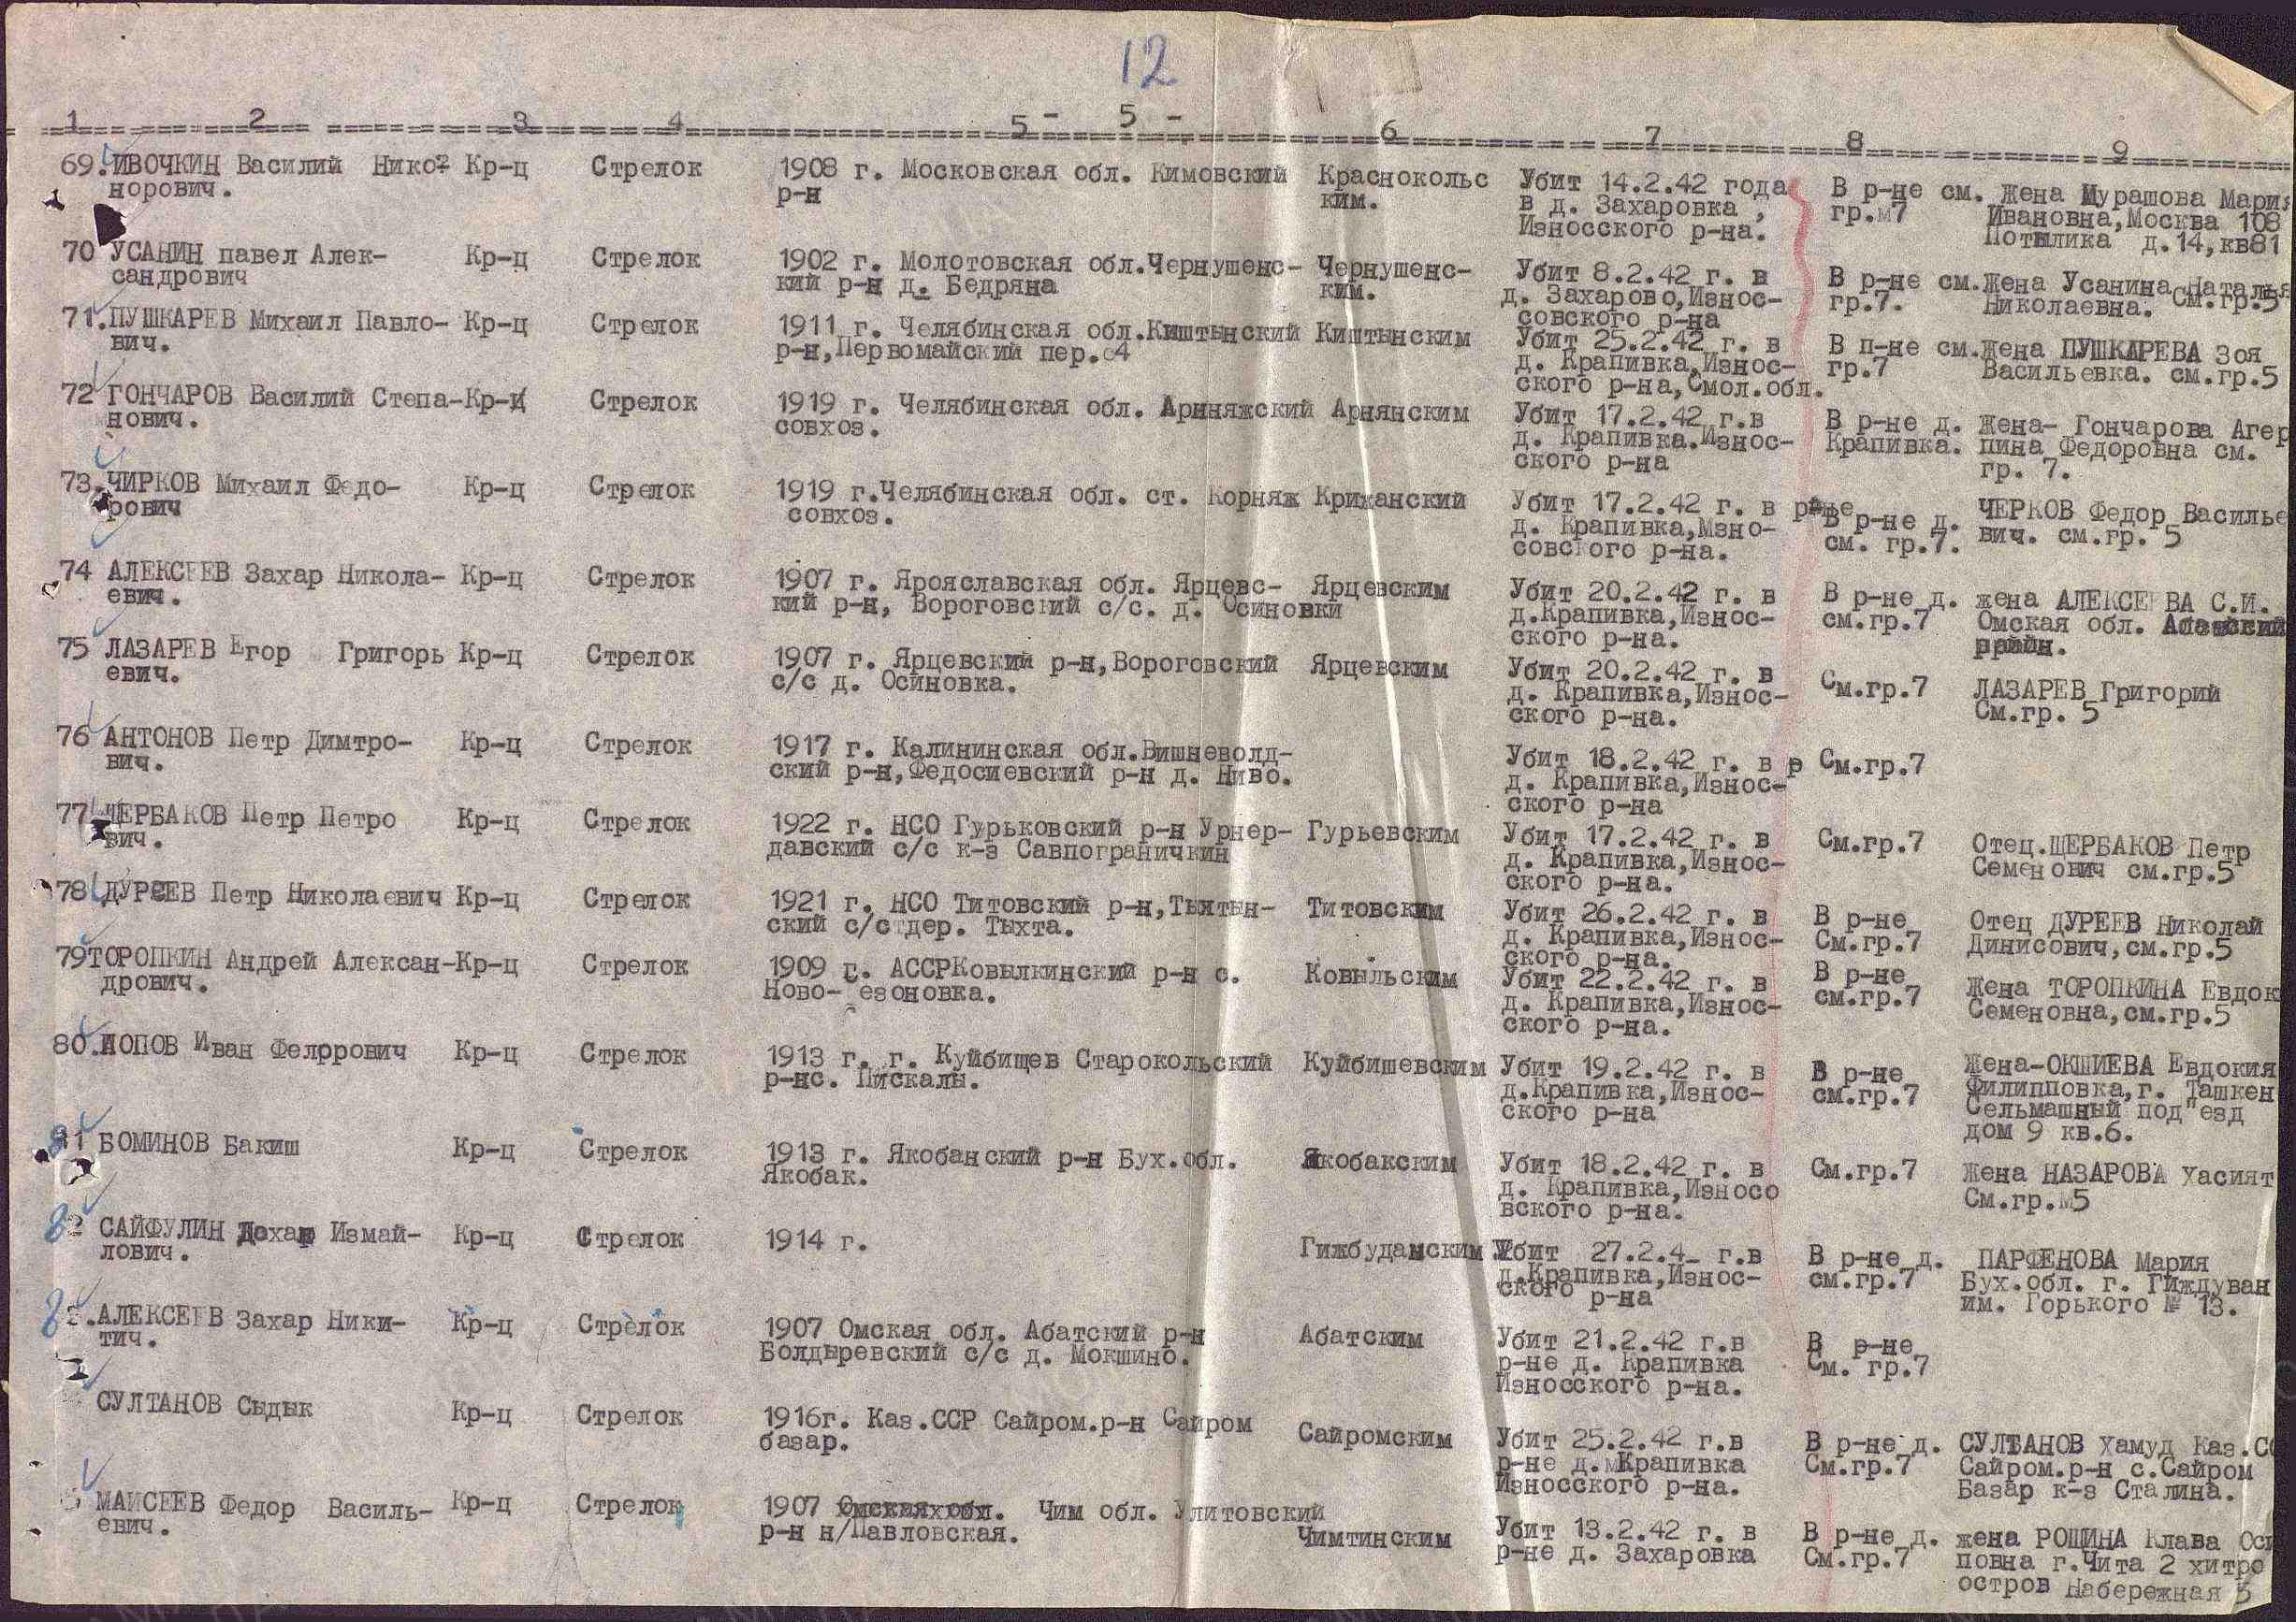 12
- 5 -
1 2 3 4 5 6 7 8 9
69. ИВОЧКИН Василий Нико- Кр-ц Стрелок 1908 г. Московская обл. Кимовский Краснокольс Убит 14.2.42 года В р-не см. Жена Мурашова Мария
норович. р-н ким. в д. Захаровка , гр.м7 Ивановна,Москва 108
Износского р-на. Потылика д.14,кв81
70 УСАНИН павел Алек- Кр-ц Стрелок 1902 г. Молотовская обл.Чернушенс- Чернушенс- Убит 8.2.42 г. в В р-не см. Жена Усанина Наталья
сандрович кий р-н д. Бедряна ким. д. Захарово,Износ- гр.7. Николаевна. См.гр.5
совского р-на
71. ПУШКАРЕВ Михаил Павло- Кр-ц Стрелок 1911 г. Челябинская обл.Киштынский Киштынским Убит 25.2.42 г. в В п-не см. Жена ПУШКАРЕВА Зоя
вич. р-н,Первомайский пер.с4 д. Крапивка,Износ- гр.7 Васильевка. см.гр.5
ского р-на,Смол.обл.
72 ГОНЧАРОВ Василий Степа- Кр-ц Стрелок 1919 г. Челябинская обл. Арнняжский Арнянским Убит 17.2.42 г.в В р-не д. Жена- Гончарова Агер
нович. совхоз. д. Крапивка.Износ- Крапивка. пина Федоровна см.
ского р-на гр. 7.
73. ЧИРКОВ Михаил Федо- Кр-ц Стрелок 1919 г.Челябинская обл. ст. Корняж Крижанский Убит 17.2.42 г. в р-не В р-не д. ЧЕРКОВ Федор Василье
рович совхоз. д. Крапивка,Мзно- см. гр.7. вич. см.гр. 5
совского р-на.
74 АЛЕКСЕЕВ Захар Никола- Кр-ц Стрелок 1907 г. Ярояславская обл. Ярцевс- Ярцевским Убит 20.2.42 г. в В р-не д. жена АЛЕКСЕЕВА С.И.
евич. кий р-н, Вороговский с/с. д. Осиновки д.Крапивка,Износ- см.гр.7 Омская обл. Абатский
ского р-на. район.
75 ЛАЗАРЕВ Егор Григорь Кр-ц Стрелок 1907 г. Ярцевский р-н,Вороговский Ярцевским Убит 20.2.42 г. в См.гр.7 ЛАЗАРЕВ Григорий
евич. с/с д. Осиновка. д. Крапивка,Износ- См.гр. 5
ского р-на.
76 АНТОНОВ Петр Димтро- Кр-ц Стрелок 1917 г. Калининская обл.Вишневолд- Убит 18.2.42 г. в р См.гр.7
вич. ский р-н,Федосиевский р-н д. Ниво. д. Крапивка,Износ-
ского р-на
77 ЩЕРБАКОВ Петр Петро Кр-ц Стрелок 1922 г. НСО Гурьковский р-н Урнер- Гурьевским Убит 17.2.42 г. в См.гр.7 Отец.ЩЕРБАКОВ Петр
вич. давский с/с к-з Савпограничкин д. Крапивка,Износ- Семенович см.гр.5
ского р-на.
78 ДУРЕЕВ Петр Николаевич Кр-ц Стрелок 1921 г. НСО Титовский р-н,Тыхтын- Титовским Убит 26.2.42 г. в В р-не Отец ДУРЕЕВ Николай
ский с/стдер. Тыхта. д. Крапивка,Износ- См.гр.7 Динисович,см.гр.5
ского р-на.
79 ТОРОПКИН Андрей Алексан- Кр-ц Стрелок 1909 г. АССРКовылкинский р-н с. Ковыльским Убит 22.2.42 г. в В р-не Жена ТОРОПКИНА Евдок
дрович. Ново- езоновка. д. Крапивка,Износ- см.гр.7 Семеновна,см.гр.5
ского р-на.
80. ПОПОВ Иван Фелррович Кр-ц Стрелок 1913 г. г. Куйбищев Старокольский Куйбишевским Убит 19.2.42 г. в В р-не Жена-ОКШИЕВА Евдокия
р-нс. Пискалы. д.Крапивка,Износ- см.гр.7 Филипповка,г. Ташкен
ского р-на Сельмашный под"езд
дом 9 кв.6.
81 БОМИНОВ Бакиш Кр-ц Стрелок 1913 г. Якобанский р-н Бух.обл. Якобакским Убит 18.2.42 г. в См.гр.7 Жена НАЗАРОВА Хасият
Якобак. д. Крапивка,Износо См.гр.м5
вского р-на.
82 САЙФУЛИН Измай- Кр-ц Стрелок 1914 г. Гижбуданским Убит 27.2.4 г.в В р-не д. ПАРФЕНОВА Мария
лович. д.Крапивка,Износ- см.гр.7 Бух.обл. г. Гиждуван
ского р-на им. Горького № 13.
8 .АЛЕКСЕЕВ Захар Ники- Кр-ц Стрелок 1907 Омская обл. Абатский р-н Абатским Убит 21.2.42 г.в В р-не
тич. Болдыревский с/с д. Мокшино. р-не д. Крапивка См. гр.7
Износского р-на.
СУЛТАНОВ Сыдык Кр-ц Стрелок 1916г. Каз.ССР Сайром.р-н Сайром Сайромским Убит 25.2.42 г.в В р-не д. СУЛТАНОВ Хамуд Каз.СС
базар. р-не д.мКрапивка См.гр.7 Сайром.р-н с.Сайром
Износского р-на. Базар к-з Сталина.
МАИСЕЕВ Федор Василь- Кр-ц Стрелок 1907 Омская обл. Чим обл. Улитовский Чимтинским Убит 13.2.42 г. в В р-не д. жена РОШИНА Клава Оси
евич. р-н н/Павловская. р-не д. Захаровка См.гр.7 повна г.Чита 2 хитро
остров Набережная 5